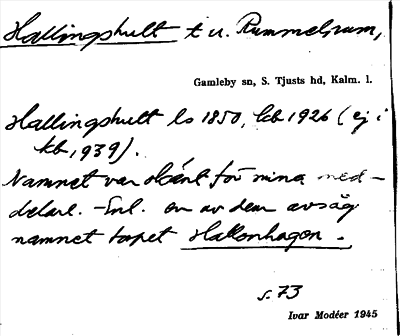 Hallingshult t u. Rummelsrum,
Gamleby sn, S. Tjusts hd, Kalm. l.
Hallingshult ls 1850, kb 1926 (ej i
kb, 1939).
Namnet var okänt för mina med-
delare. - Enl. en av dem avsåg
namnet torpet Hallonhagen.
s. 73
Ivar Modéer 1945